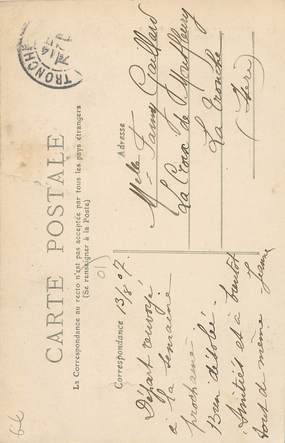 CARTE POSTALE
La Correspondance au recto n'est pas acceptée par tous les pays étrangers
(Se renseigner à la Poste)
Correspondance 13/8 07.
Départ renvoyé
à la semaine
prochaine
Bien désolée.
Amitiés et à bientôt
tout de même. Jeanne
Adresse
Melle Fanny Gaillard
La Croix de Montfleury
La Tronche
(Isère)
TRONCHE
14
66